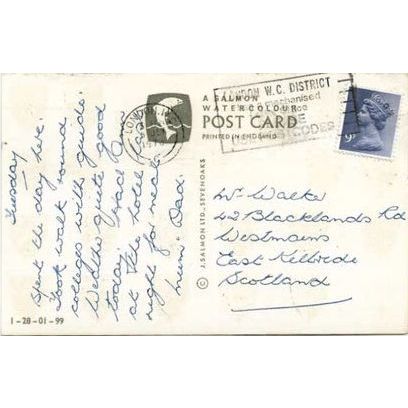 Tuesday
Spent the day here.
Took walk round
colleges with guide.
Weather quite good
today. Had
at the hotel
night for meal.
Mum & Dad.
LONDON W.C.
LONDON W.C. DISTRICT
Mechanised
CODES
A SALMON
WATERCOLOUR
POST CARD
PRINTED IN ENGLAND
9P
© J. SALMON LTD., SEVENOAKS
Mr Walker
42 Blacklands Rd
Westmains
East Kilbride
Scotland
1-28-01-99